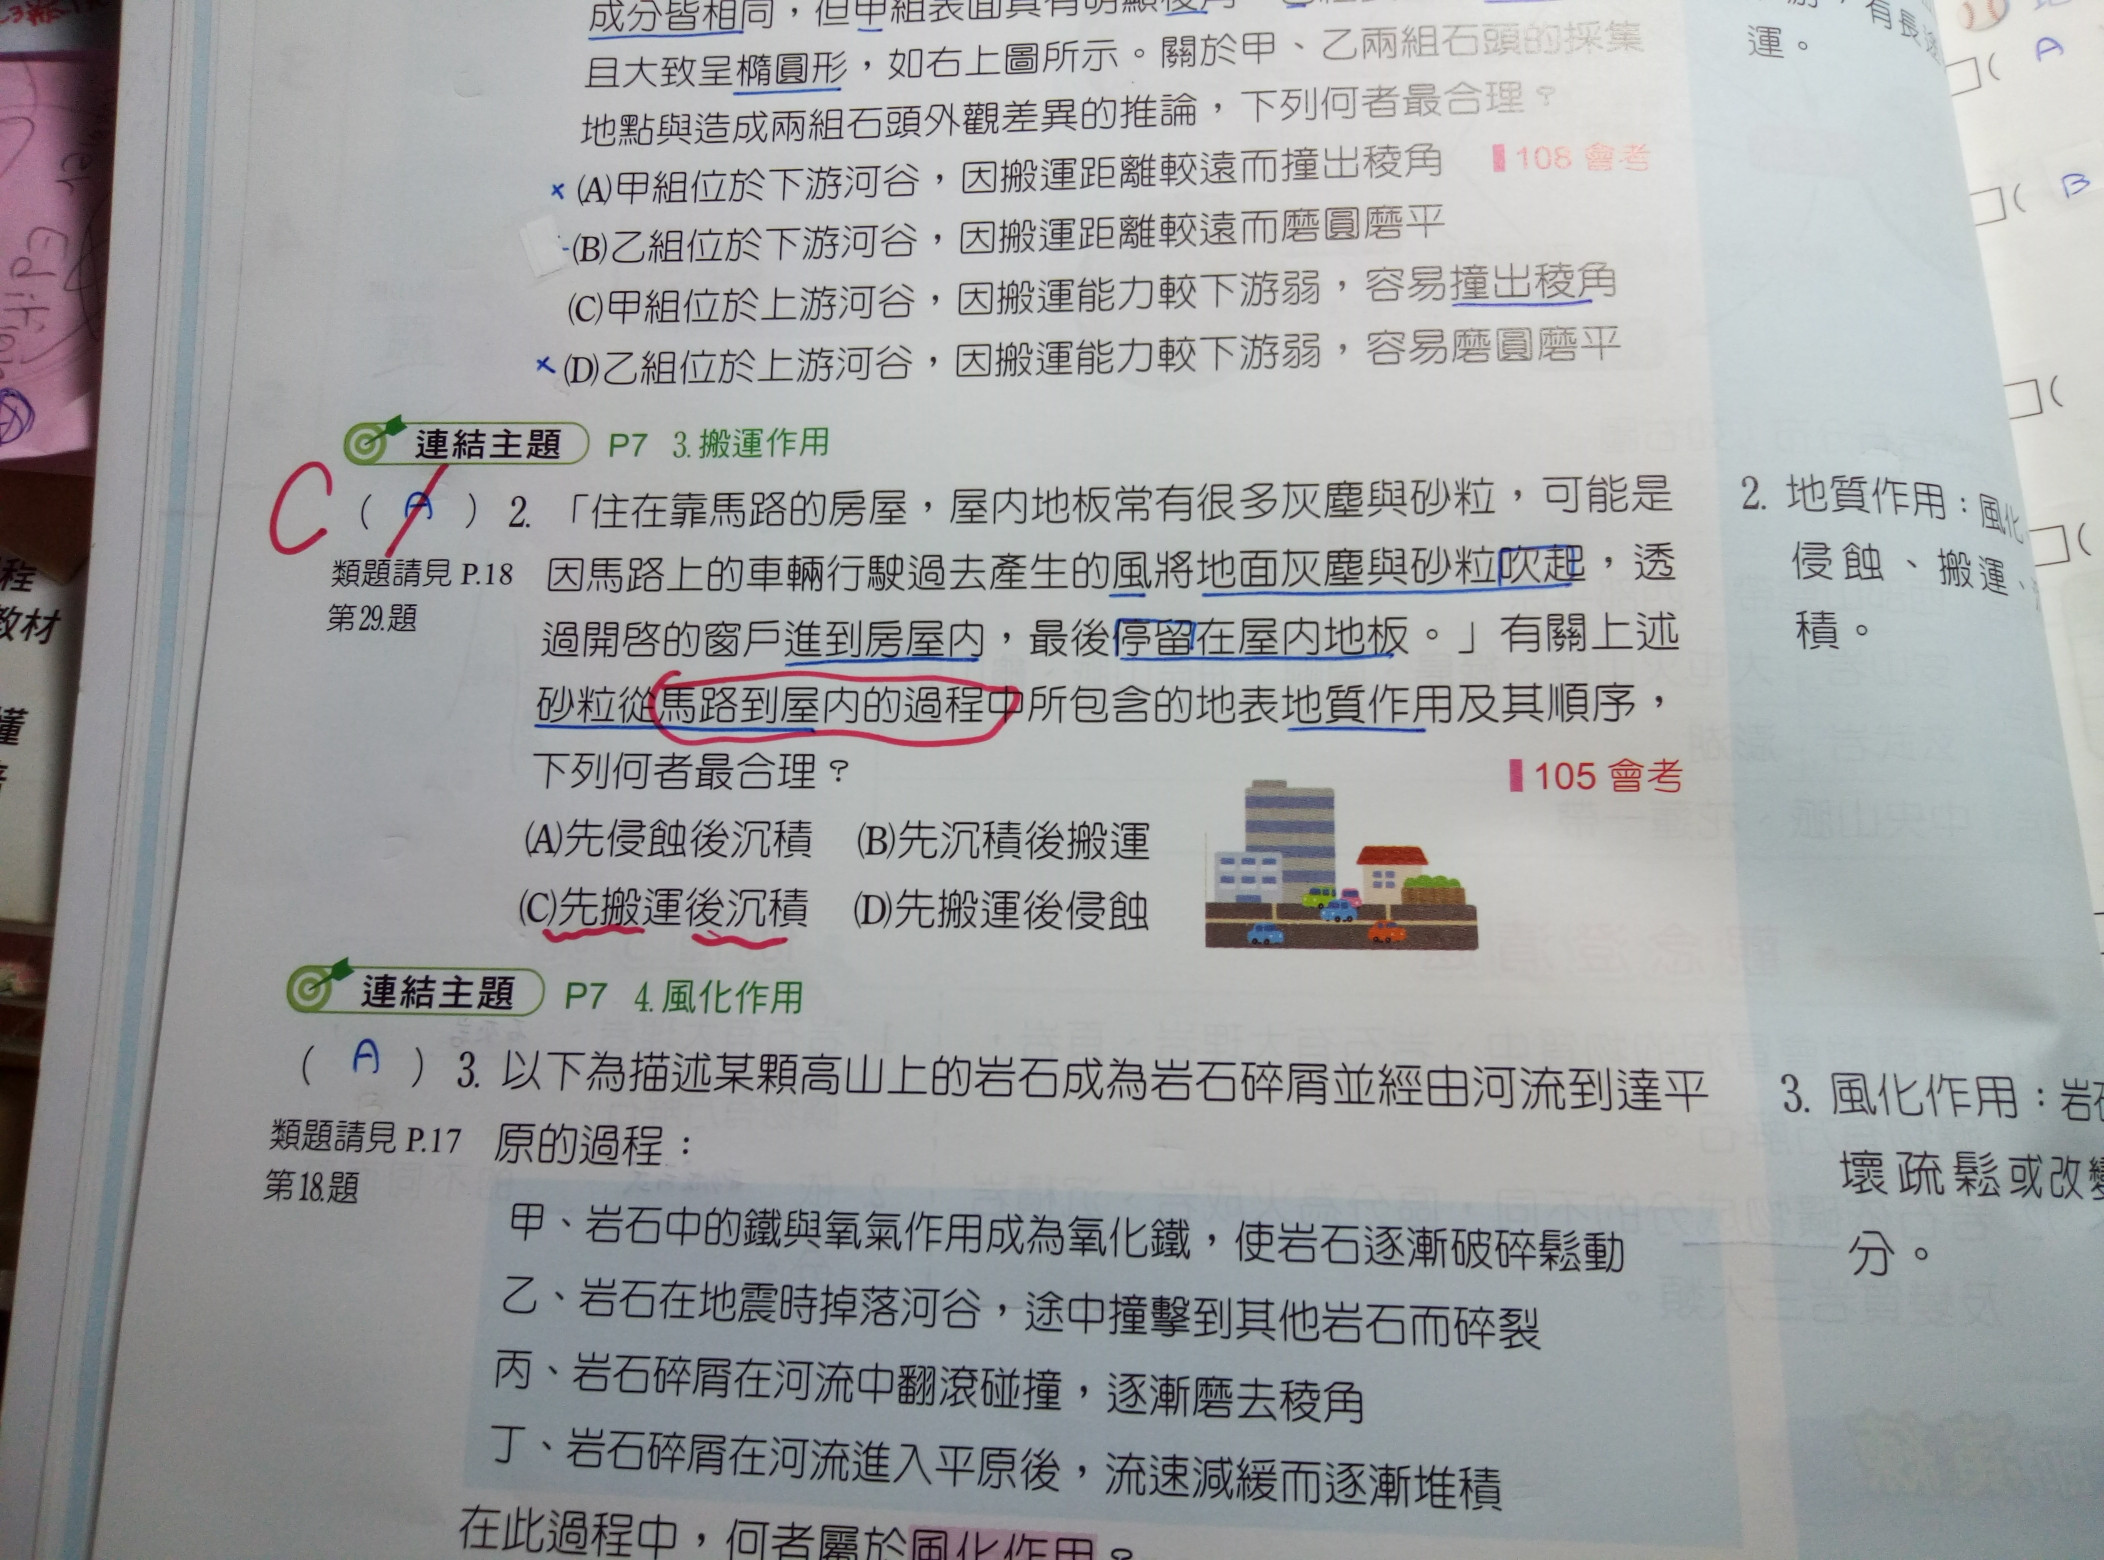 成分皆相同,但甲組表面具有明顯稜角
且大致呈橢圓形,如右上圖所示。關於甲、乙兩組石頭的採集
地點與造成兩組石頭外觀差異的推論,下列何者最合理?
108 會考
× (A)甲組位於下游河谷,因搬運距離較遠而撞出稜角
(B)乙組位於下游河谷,因搬運距離較遠而磨圓磨平
(C)甲組位於上游河谷,因搬運能力較下游弱,容易撞出稜角
× (D)乙組位於上游河谷,因搬運能力較下游弱,容易磨圓磨平
連結主題 P7 3.搬運作用
C ( A ) 2. 「住在靠馬路的房屋,屋內地板常有很多灰塵與砂粒,可能是
類題請見 P.18
第29.題
因馬路上的車輛行駛過去產生的風將地面灰塵與砂粒吹起,透
過開啓的窗戶進到房屋內,最後停留在屋內地板。」有關上述
砂粒從馬路到屋內的過程中所包含的地表地質作用及其順序,
下列何者最合理?
105 會考
(A)先侵蝕後沉積 (B)先沉積後搬運
(C)先搬運後沉積 (D)先搬運後侵蝕
連結主題 P7 4.風化作用
( A ) 3. 以下為描述某顆高山上的岩石成為岩石碎屑並經由河流到達平
類題請見 P.17
第18.題
原的過程:
甲、岩石中的鐵與氧氣作用成為氧化鐵,使岩石逐漸破碎鬆動
乙、岩石在地震時掉落河谷,途中撞擊到其他岩石而碎裂
丙、岩石碎屑在河流中翻滾碰撞,逐漸磨去稜角
丁、岩石碎屑在河流進入平原後,流速減緩而逐漸堆積
在此過程中,何者屬於風化作用?
運。
有長
2. 地質作用:風化
侵蝕、搬運、
積。
3. 風化作用:岩
壞疏鬆或改變
分。
( A
( B
(
(
程
教材
懂